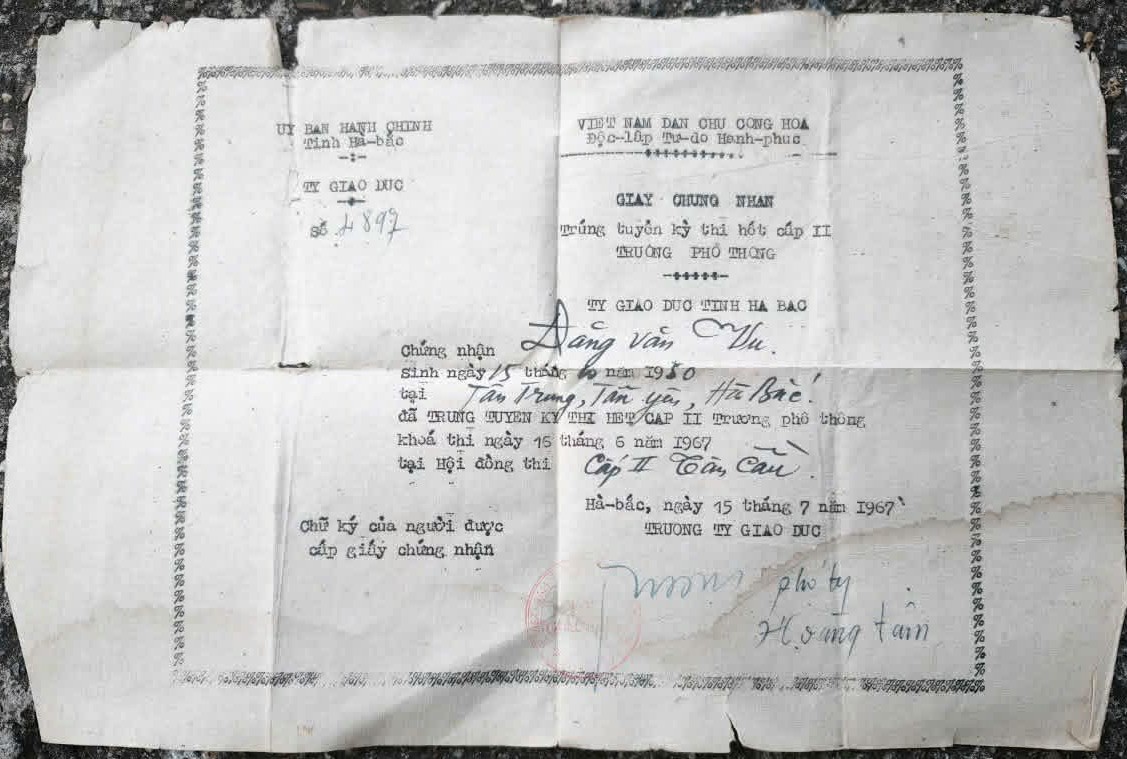 UY BAN HANH CHINH
Tinh Hà-bắc
TY GIAO DUC
Số 4897
VIET NAM DAN CHU CONG HOA
Độc-lập Tự-do Hanh-phuc
GIAY CHUNG NHAN
Trúng tuyển kỳ thi hết cấp II
TRUONG PHỔ THONG
TY GIAO DUC TINH HA BAC
Chứng nhận Đặng văn Vu.
Sinh ngày 15 tháng 6 năm 1950
tại Tân Trung, Tân yên, Hà Bắc.
đã TRUNG TUYEN KY THI HET CAP II Trương phổ thông
khoá thi ngày 16 tháng 6 năm 1967
tại Hội đồng thi Cấp II Tân Cầu.
Hà-bắc, ngày 15 tháng 7 năm 1967
TRUONG TY GIAO DUC
Chữ ký của người được
cấp giấy chứng nhận
phó ty
Hoàng tâm